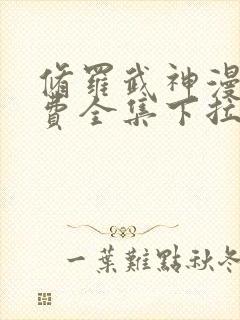 脩羅武神漫
費全集下拉
一葉難點秋冬